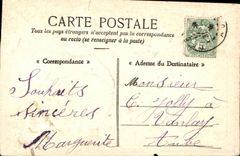 CARTE POSTALE
Tous les pays étrangers n'acceptent pas la correspondance
au recto (se renseigner à la poste)
« Correspondance »
« Adresse du Destinataire »
Souhaits
sincères
Marguerite
Monsieur
C. Jolly à
Aube